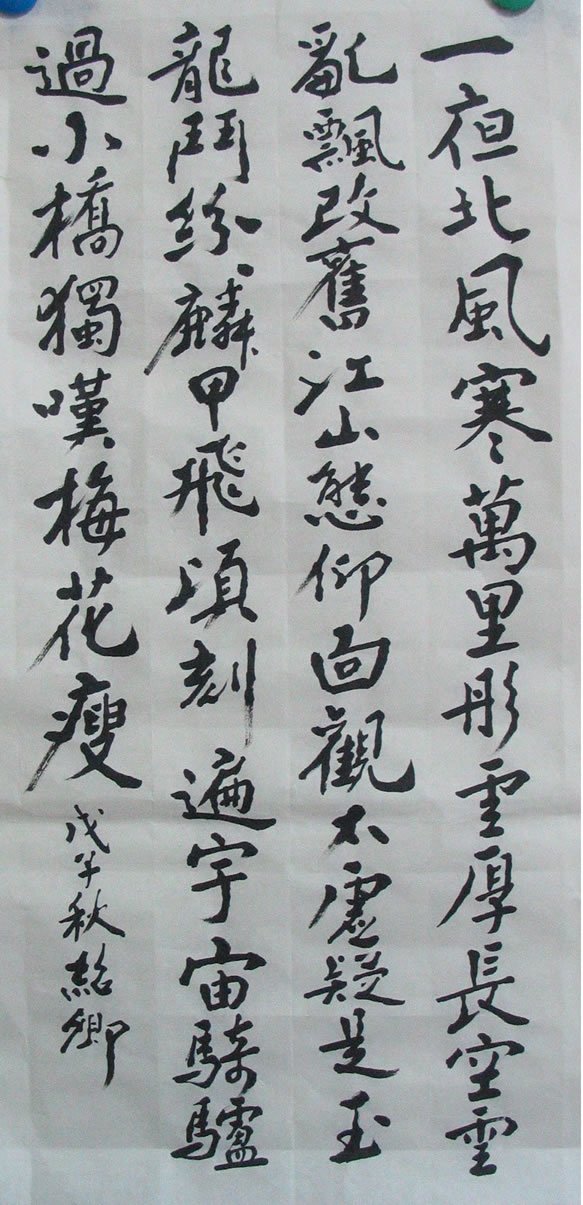 一夜北風寒萬里彤雲厚長空雪
亂飄改舊江山態仰面觀太虛疑是玉
龍鬥紛〻麟甲飛頃刻遍宇宙騎驢
過小橋獨嘆梅花瘦
戊子秋紹卿